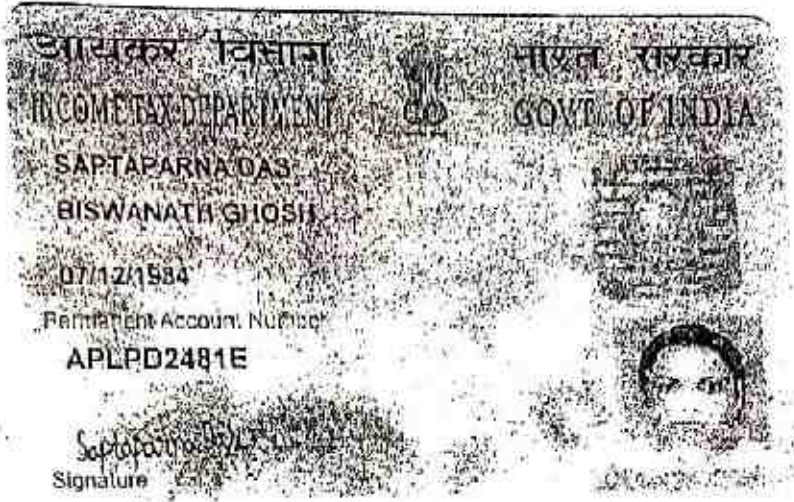 आयकर विभाग
भारत सरकार
INCOME TAX DEPARTMENT
GOVT. OF INDIA
SAPTAPARNA DAS
BISWANATH GHOSH
07/12/1984
Permanent Account Number
APLPD2481E
Saptaparna
Signature